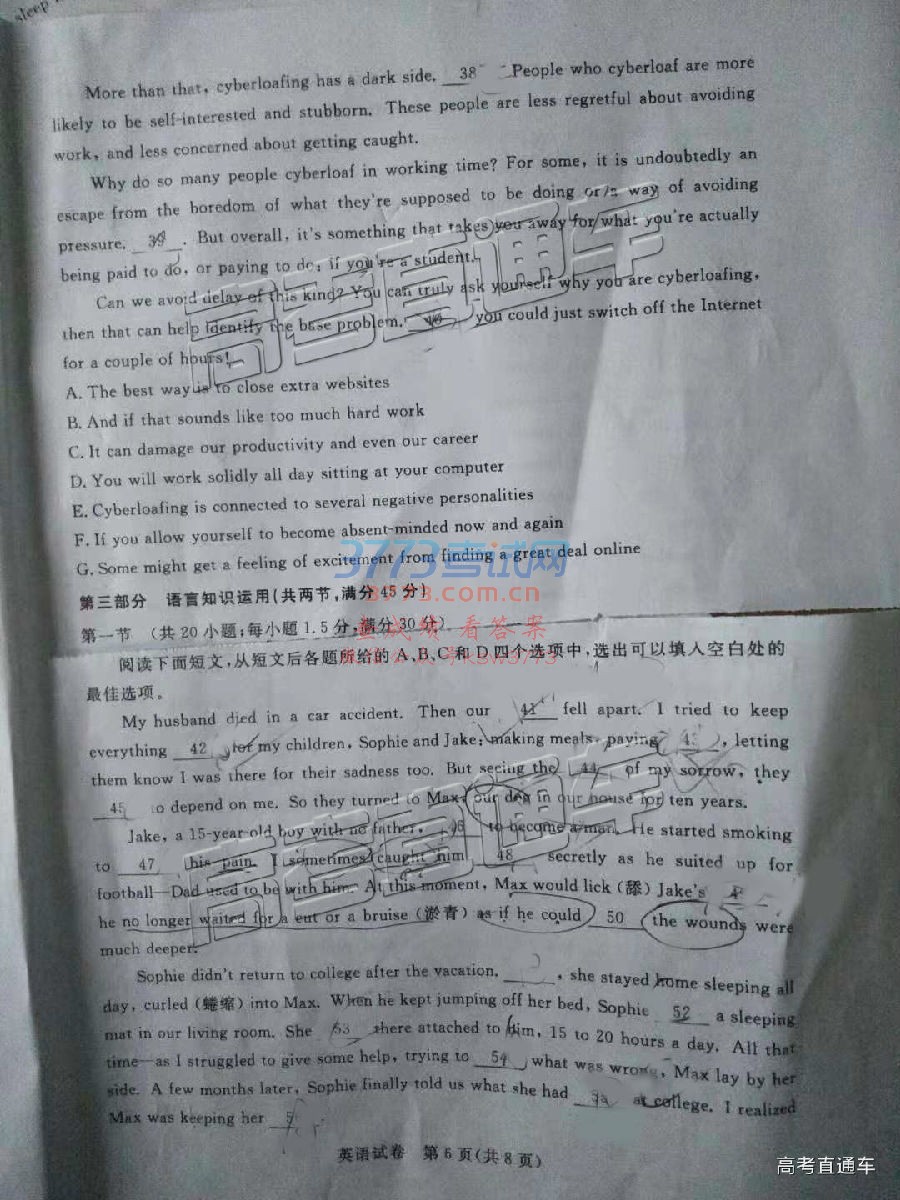 sleep
More than that, cyberloafing has a dark side. 38 People who cyberloaf are more
likely to be self-interested and stubborn. These people are less regretful about avoiding
work, and less concerned about getting caught.
Why do so many people cyberloaf in working time? For some, it is undoubtedly an
escape from the boredom of what they're supposed to be doing or a way of avoiding
pressure. 39 . But overall, it's something that takes you away for what you're actually
being paid to do, or paying to do, if you're a student.
Can we avoid delay of this kind? You can truly ask yourself why you are cyberloafing,
then that can help identify the base problem. 40 you could just switch off the Internet
for a couple of hours!
A. The best way is to close extra websites
B. And if that sounds like too much hard work
C. It can damage our productivity and even our career
D. You will work solidly all day sitting at your computer
E. Cyberloafing is connected to several negative personalities
F. If you allow yourself to become absent-minded now and again
G. Some might get a feeling of excitement from finding a great deal online
第三部分 语言知识运用(共两节,满分45分)
第一节 (共20小题;每小题1.5分,满分30分)
阅读下面短文,从短文后各题所给的A、B、C和D四个选项中,选出可以填入空白处的
最佳选项。
My husband died in a car accident. Then our 41 fell apart. I tried to keep
everything 42 for my children, Sophie and Jake: making meals, paying 43 , letting
them know I was there for their sadness too. But seeing the 44 of my sorrow, they
45 to depend on me. So they turned to Max, our dog in our house for ten years.
Jake, a 15-year-old boy with no father, 46 to become a man. He started smoking
to 47 his pain. I sometimes caught him 48 secretly as he suited up for
football—Dad used to be with him. At this moment, Max would lick (舔) Jake's
he no longer waited for a cut or a bruise (淤青) as if he could 50 the wounds were
much deeper.
Sophie didn't return to college after the vacation. , she stayed home sleeping all
day, curled (蜷缩) into Max. When he kept jumping off her bed, Sophie 52 a sleeping
mat in our living room. She 53 there attached to him, 15 to 20 hours a day. All that
time—as I struggled to give some help, trying to 54 what was wrong, Max lay by her
side. A few months later, Sophie finally told us what she had 55 at college. I realized
Max was keeping her
英语试卷 第6页(共8页)
高考直通车
3773考试网
3773.com.cn
查成绩 看答案
高考直通车
高考直通车